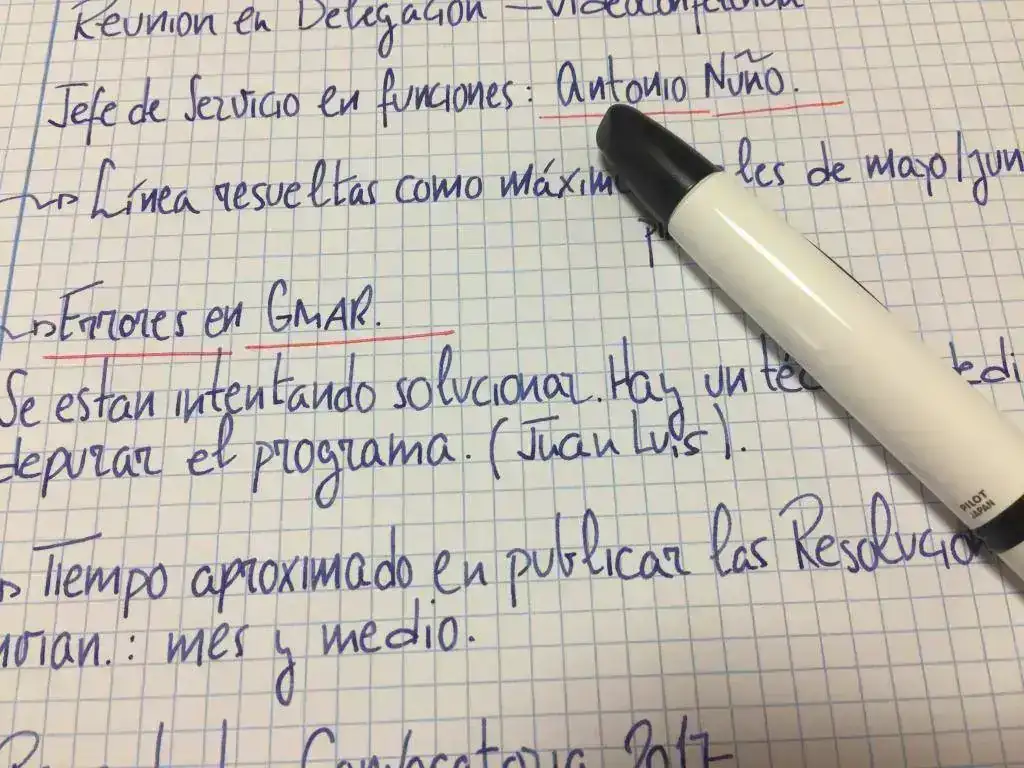 Reunion en Delegación – Videoconferencia
Jefe de Servicio en funciones: Antonio Nuño.
Línea resueltas como máximo les de mayo/jun
Errores en GMAR.
Se estan intentando solucionar. Hay un
depurar el programa. (Juan Luis).
Tiempo aproximado en publicar las Resolucion
mes y medio.
Convocatoria 2017
PILOT
JAPAN